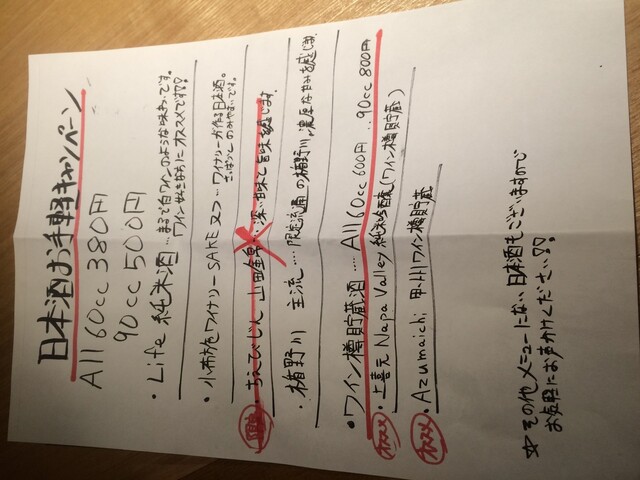 日本酒お手軽キャンペーン
All 60cc 380円
90cc 500円
・Life 純米酒 …まるで白ワインのような味わいです。
ワイン好きな方にオススメです!!
・小布施ワイナリー SAKE ヌフ…ワイナリーが作る日本酒。
さっぱりとのみやすいです。
・ちえびじん 山田全…深い甘味と旨味を感じます
・楯野川 主流 … 限定流通の楯野川。濃厚な甘みを感じます
・ワイン樽貯蔵酒 … All 60cc 600円 .. 90cc 800円
オススメ ・上喜元 Napa Valley 純米吟醸(ワイン樽貯蔵)
オススメ ・Azumaichi 甲州ワイン樽貯蔵
☆その他メニューにない日本酒もございますので
お気軽にお声かけください!!